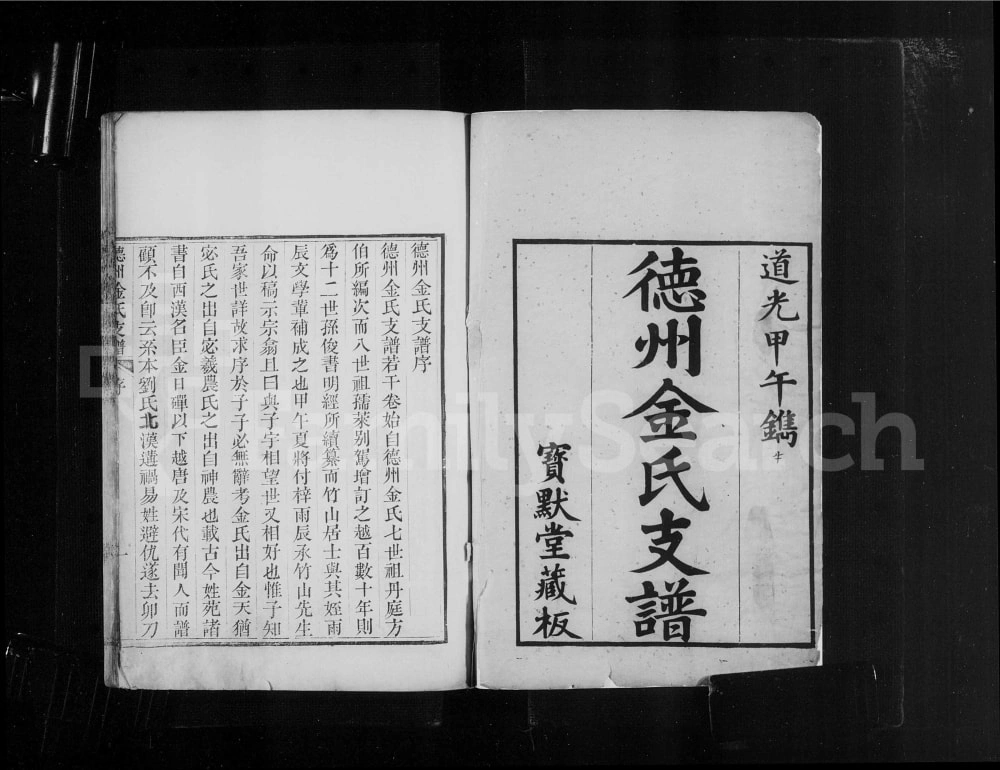 道光甲午鐫
德州金氏支譜
寶默堂藏板
德州金氏支譜序
德州金氏支譜若干卷始自德州金氏七世祖丹庭方
伯所編次而八世祖孺萊别駕增訂之越百數十年則
為十二世孫俊書明經所續纂而竹山居士與其姪雨
辰文學葦補成之也甲午夏將付梓雨辰承竹山先生
命以稿示宗翁且曰與子宇相望世又相好也惟子知
吾家世詳故求序於子子必無辭考金氏出自金天猶
宓氏之出自宓羲農氏之出自神農也載古今姓苑諸
書自西漢名臣金日磾以下越唐及宋代有聞人而譜
顧不及即云系本劉氏北漢遘禍易姓避仇遂去卯刀
德州金氏支譜 序 一
FamilySearch